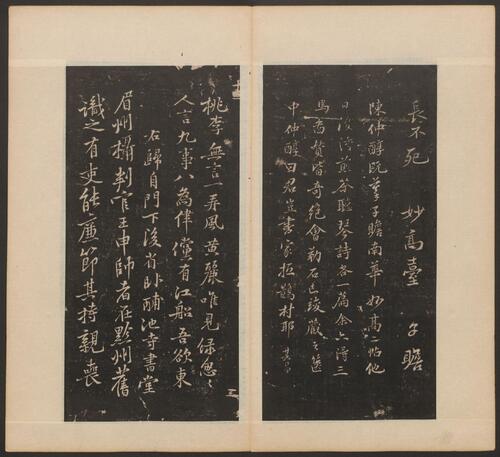 長不死 妙高臺 子瞻
陳仲醇既摹子瞻南華妙高二帖他
日復詩煎茶聽琴詩各一篇余六詩三
馬贊皆奇絕會勒石已竣嚴之篋
中仲醇曰君豈書家村耶 其昌
桃李無言一再風黃鸝唯見綠怱々
人言九事八為律儻有江船吾欲東
右歸自門下後省卧酺池寺書堂
眉州攝判官王申師者在黔州舊
識之有吏能廉節其持親喪